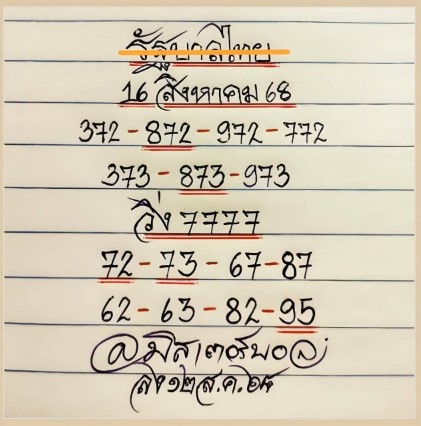 รัฐบาลไทย
16 สิงหาคม 68
372-872-972-772
373-873-973
วิ่ง 7777
72-73-67-87
62-63-82-95
@มิสเตอร์บอล
ลง๑๒ส.ค.๖๘